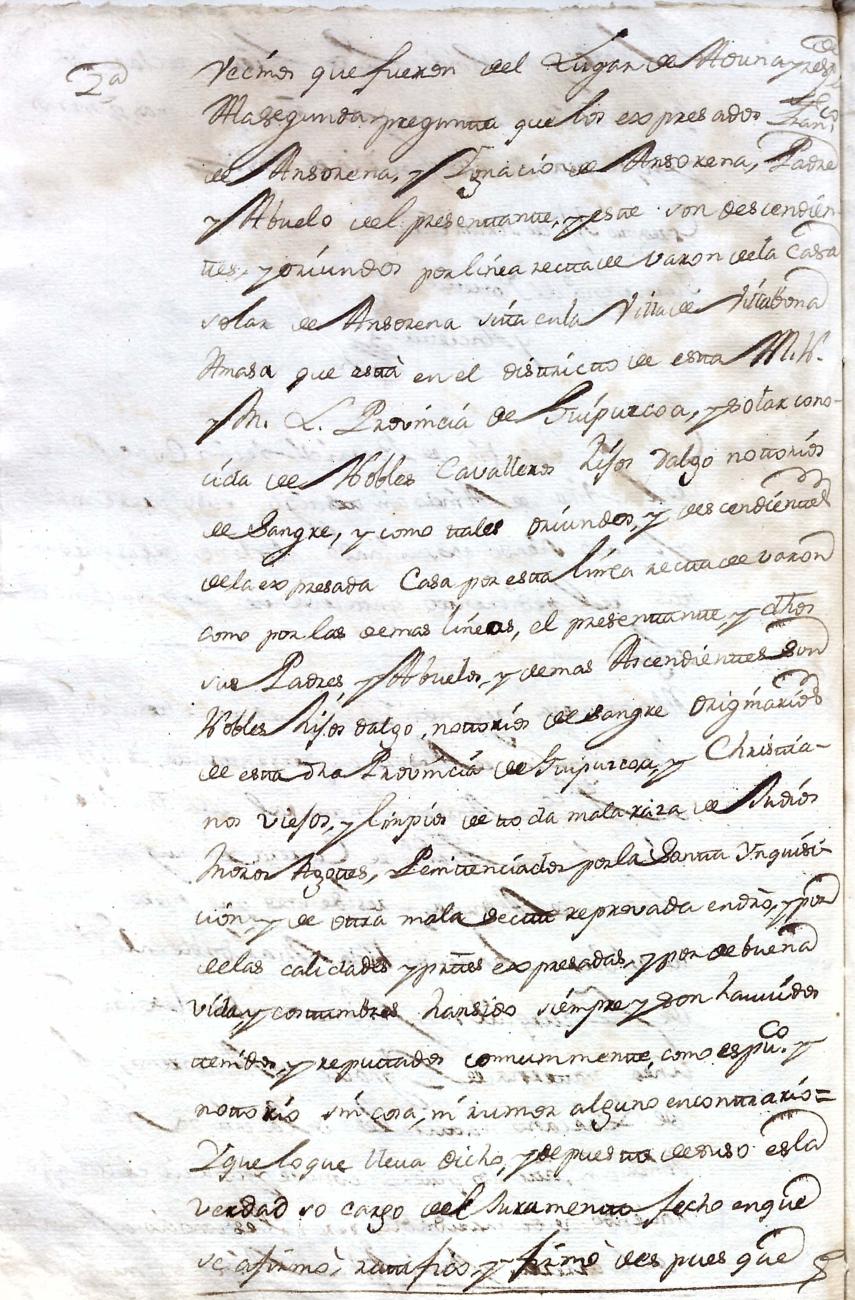 2ª
Vecinos que fueron del Lugar de Aduna, y resp.
A la segunda pregunta que los expresados Franco de
de Ansorena, y Ygnacio de Ansorena, Padre
y Abuelo del presenttantte, y este son descendien
ttes, y oriundos por linea rectta de varon de la Casa
solar de Ansorena sita en la Villa de Villabona
Amasa que está en el districtto de estta M. N.
y M. L. Provincia de Guipuzcoa, y solar cono-
cida de Nobles Cavalleros hijos dalgo nottorios
de Sangre, y como ttales oriundos, y descendienttes
de la expresada Casa por estta linea rectta de varon
como por las demas lineas, el presenttantte, y dhos
sus Padres, y Abuelos, y demas Ascendienttes son
Nobles hijos dalgo, nottorios de sangre originarios
de estta dha Provincia de Guipuzcoa, y Christtia-
nos viejos, y limpios de ttoda mala raza de Judios
Moros Agottes, Penittenciados por la Santta Ynquisi-
ción, y de ottra mala sectta reprovada en dro, y por
de las calidades y prttes expresadas, y por de buena
vida, y costtumbres han sido siempre y son havidos
ttenidos, y reputtados comunmentte, como es puco y
nottorio sin cosa, ni rumor alguno en conttrario =
Y que lo que lleva dicho, y depuestto de suso es la
verdad so cargo del Juramentto fecho en que
se afirmó, rattificó, y firmó despues que